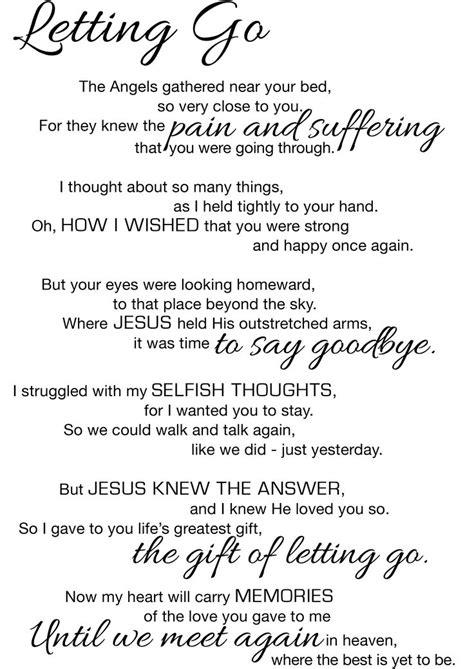 Letting Go
The Angels gathered near your bed,
so very close to you.
For they knew the pain and suffering
that you were going through.
I thought about so many things,
as I held tightly to your hand.
Oh, HOW I WISHED that you were strong
and happy once again.
But your eyes were looking homeward,
to that place beyond the sky.
Where JESUS held His outstretched arms,
it was time to say goodbye.
I struggled with my SELFISH THOUGHTS,
for I wanted you to stay.
So we could walk and talk again,
like we did - just yesterday.
But JESUS KNEW THE ANSWER,
and I knew He loved you so.
So I gave to you life's greatest gift,
the gift of letting go.
Now my heart will carry MEMORIES
of the love you gave to me
Until we meet again in heaven,
where the best is yet to be.